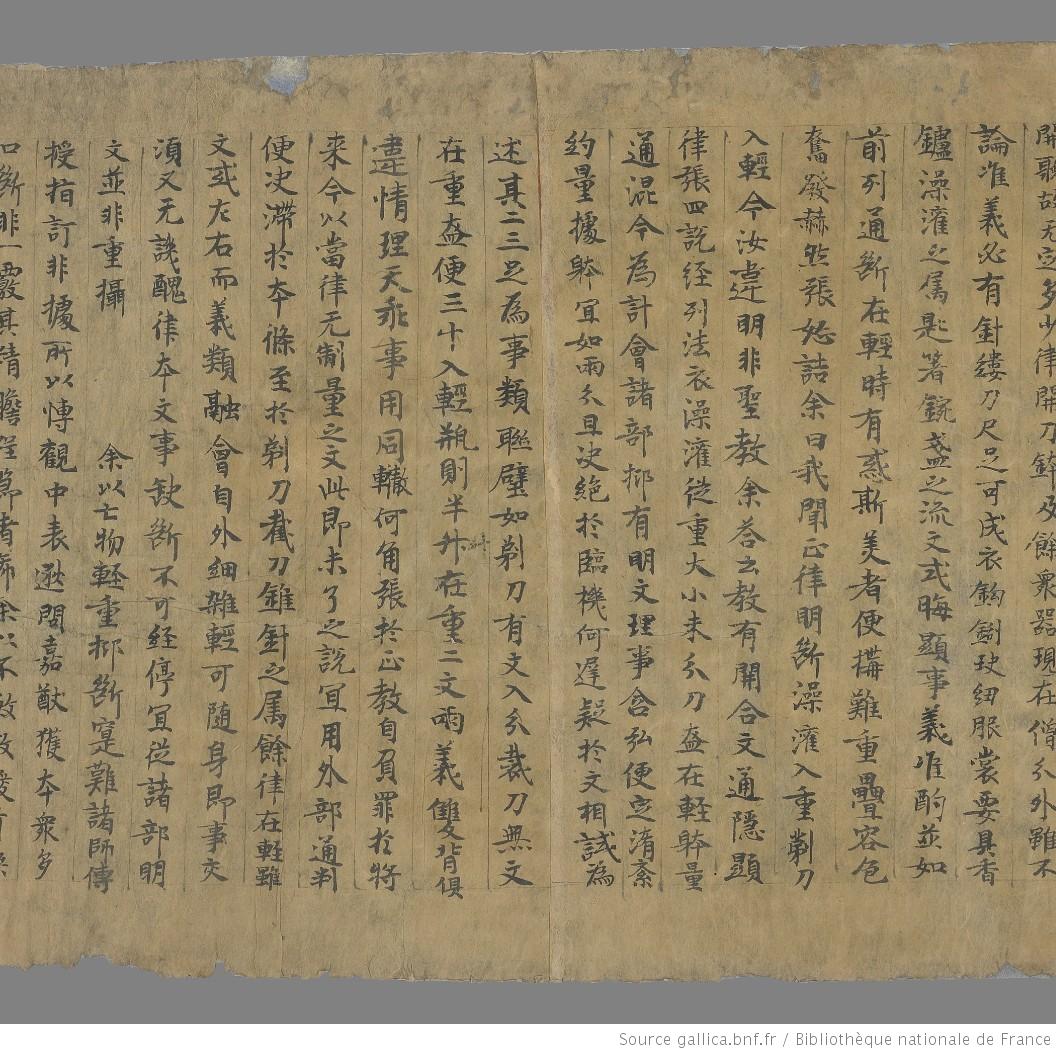 開聚故无定多少律開刀鉢及餘衆器現在僧分外雖不
論准義必有針縷刀尺足可成衣鈎㓨玦紐服裳要具香
鑪澡灌之属匙箸鋺盞之流文式晦顯事義准酌並如
前列通斷在輕時有惑斯美者便搆難重疊容色
奮發赫然張恕詰余曰我聞正律明斷澡灌入重剃刀
入輕今汝違明非聖教余荅云教有開合文通隱顯
律張四說經列法衣澡灌從重大小未分刀盔在輕躰量
通混今為計會諸部抑有明文理事含弘便定淆紊
約量據躰宜如兩分且决絕於臨機何遲疑於文相試為
述其二三足為事類聯璧如剃刀有文入分裁刀無文
在重盔便三十入輕瓶則半升在重二文兩義雙背俱
違情理天乖事用同轍何角張於正教自負罪於將
来今以當律无制量之文此即未了之說宜用外部通判
便决滯於本條至於剃刀截刀錐針之属餘律在輕雖
文或左右而義類融會自外細雜輕可随身即事交
湏又无譏醜律本文事缺斷不可経停宜從諸部明
文並非重攝 余以亡物輕重抑斷寔難諸師傳
授指訂非據所以愽觀中表遐閱嘉猷獲本衆多